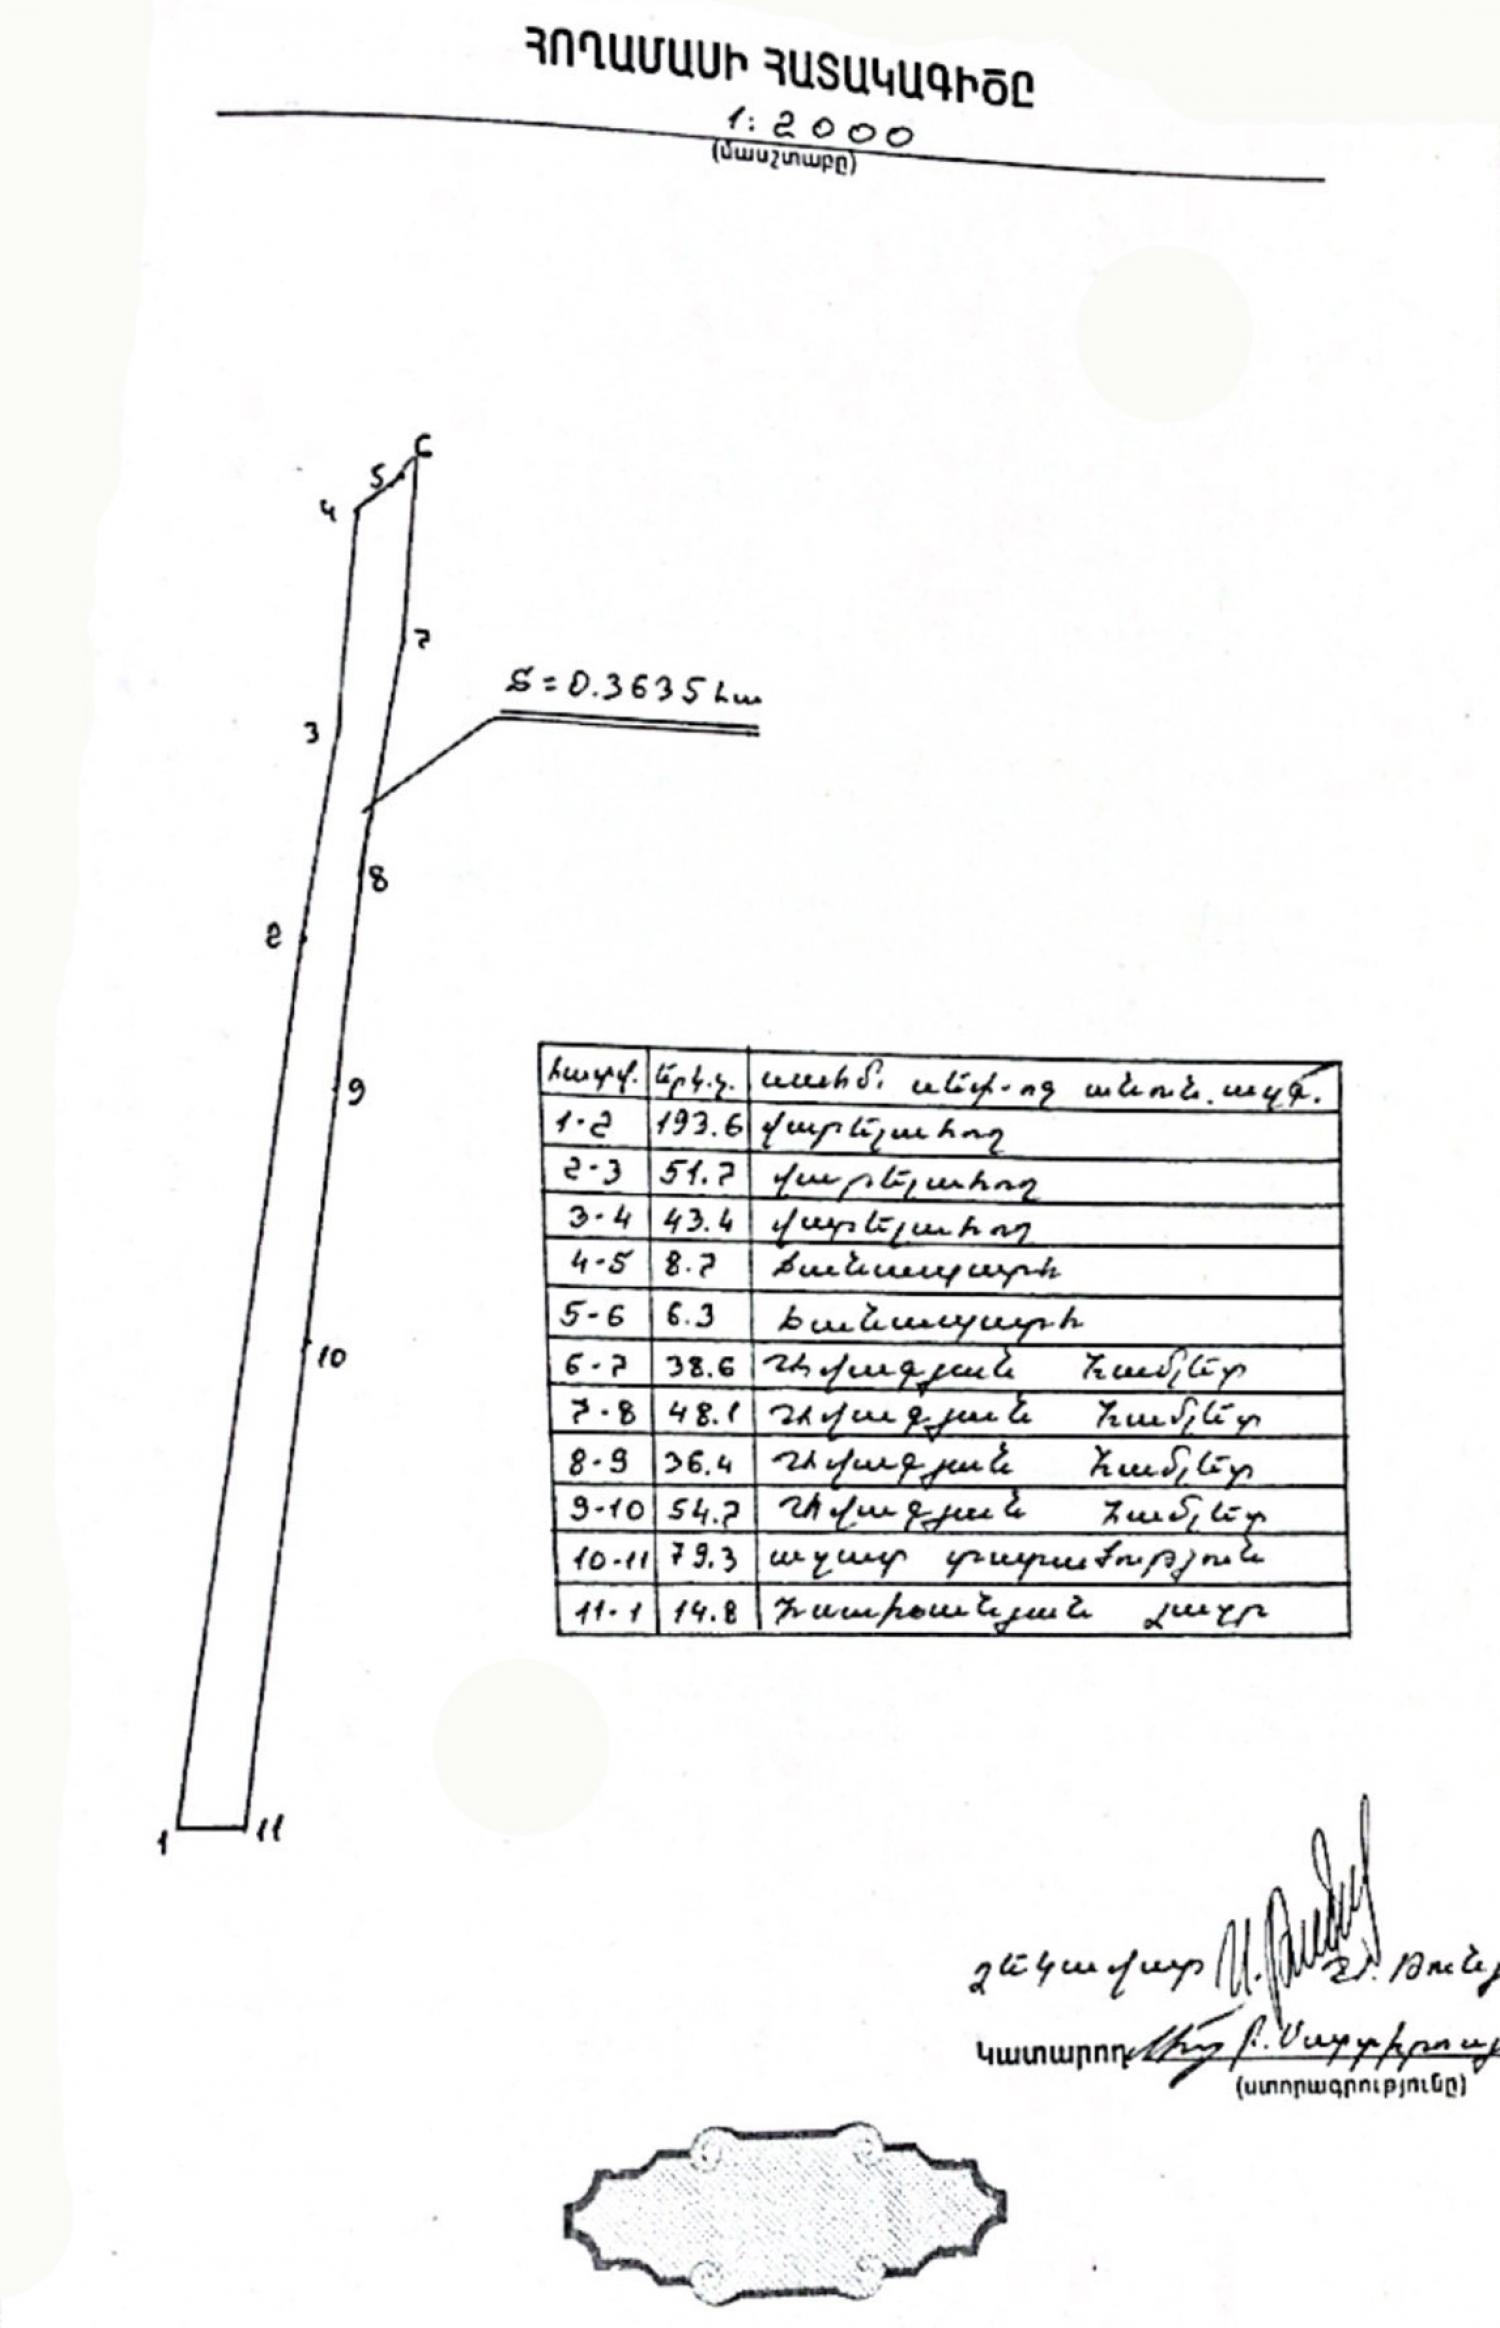 ՀՈՂԱՄԱՍԻ ՀԱՏԱԿԱԳԻԾԸ
1:2000
(մասշտաբը)
6
5
4
7
S=0.3635 հա
3
8
2
9
10
1
11
հատվ. երկ.
1-2 193.6 վարելահող
2-3 51.7 վարելահող
3-4 43.4 վարելահող
4-5 8.7 ճանապարհ
5-6 6.3 ճանապարհ
6-7 38.6 Համլետ
7-8 48.1 Համլետ
8-9 36.4 Համլետ
9-10 54.7 Համլետ
10-11 79.3 ազատ տարածություն
11-1 14.8
ղեկավար
Կատարող
(ստորագրությունը)